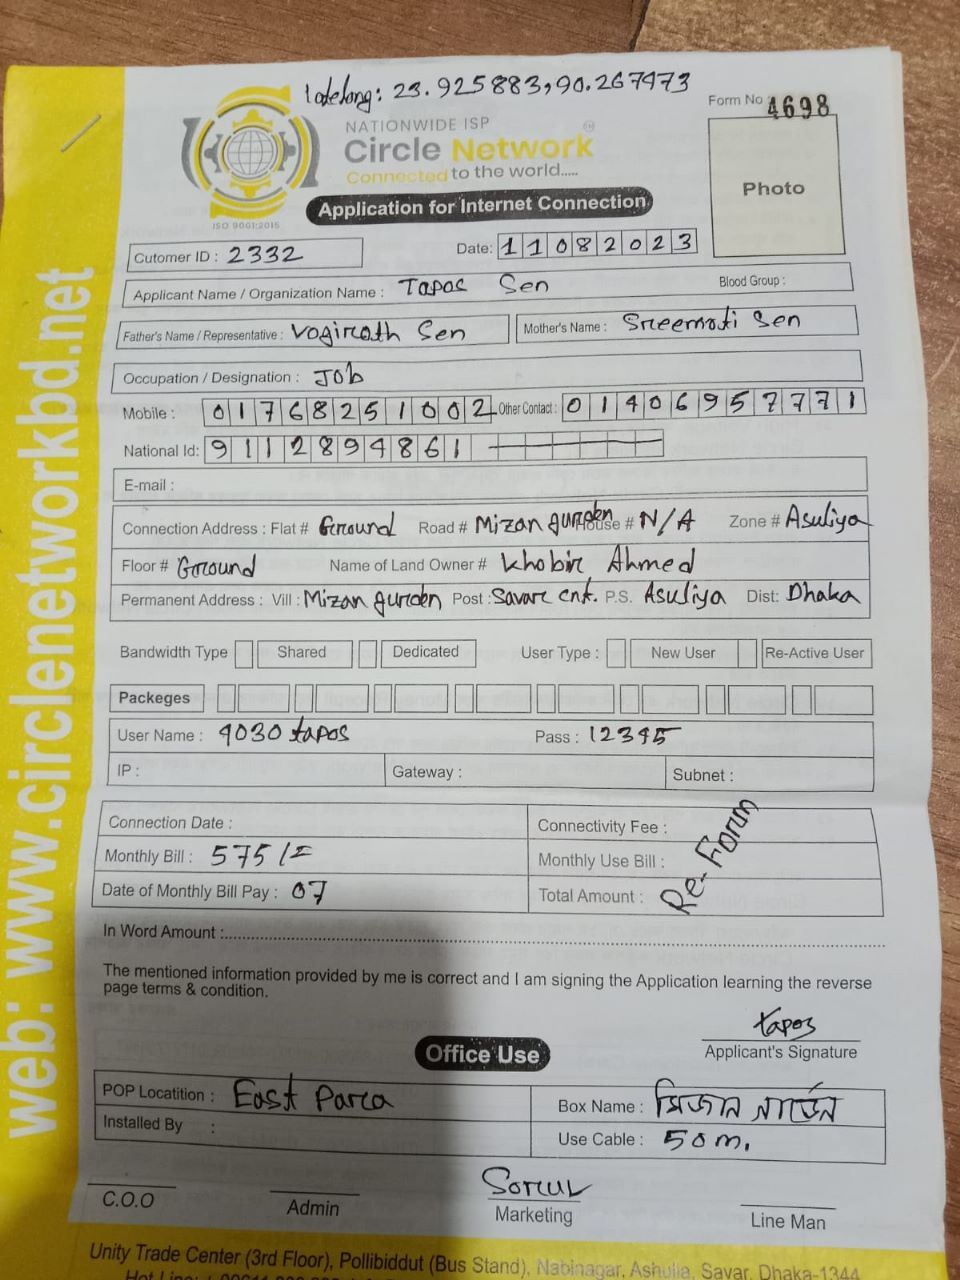 latelong: 23.925883,90.267973
Form No 4698
NATIONWIDE ISP
Circle Network
Connected to the world.....
ISO 9001:2015
Application for Internet Connection
Photo
Cutomer ID : 2332
Date: 11082023
Applicant Name / Organization Name : Tapas Sen Blood Group :
Father's Name / Representative : Vogirath Sen Mother's Name : Sreemoti Sen
Occupation / Designation : Job
Mobile : 01768251002 Other Contact : 01406957771
National Id: 9112894861
E-mail :
Connection Address : Flat # Ground Road # Mizan gurden House # N/A Zone # Asuliya
Floor # Ground Name of Land Owner # Khobir Ahmed
Permanent Address : Vill : Mizan gurden Post : Savar cnt. P.S. Asuliya Dist: Dhaka
Bandwidth Type Shared Dedicated User Type : New User Re-Active User
Packeges
User Name : 9030 tapos Pass : 12345
IP : Gateway : Subnet :
Connection Date : Connectivity Fee :
Monthly Bill : 575/= Monthly Use Bill :
Date of Monthly Bill Pay : 07 Total Amount :
Re-Form
In Word Amount :
The mentioned information provided by me is correct and I am signing the Application learning the reverse
page terms & condition.
tapos
Applicant's Signature
Office Use
POP Locatition : East Para Box Name : মিজান গার্ডেন
Installed By : Use Cable : 50 m.
C.O.O Admin Marketing Line Man
Unity Trade Center (3rd Floor), Pollibiddut (Bus Stand), Nabinagar, Ashulia, Savar, Dhaka-1344
web: www.circlenetworkbd.net